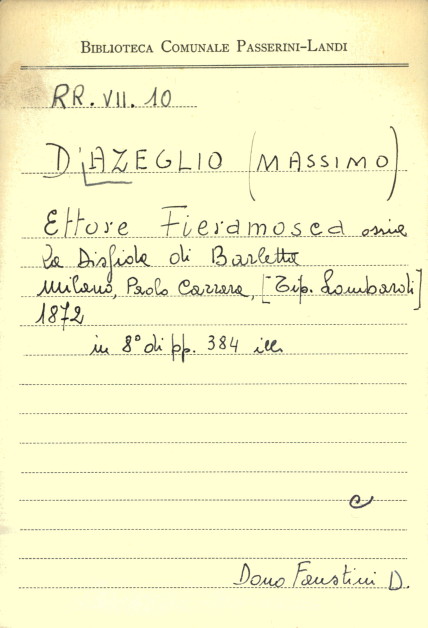 BIBLIOTECA COMUNALE PASSERINI-LANDI
RR. VII. 10
D'AZEGLIO (MASSIMO)
Ettore Fieramosca ossia
La Disfida di Barletta
Milano, Paolo Carrara, [Tip. Lombardi]
1872
in 8° di pp. 384 ill.
C
Dono Faustini D.